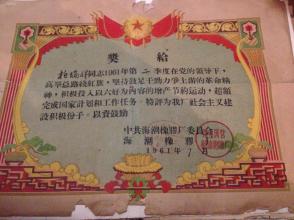 奬給
同志1961年第二季度在党的领导下，
高举总路綫紅旗，坚持鼓足干勁力爭上游的革命精
神，积极投入以六好为內容的增产节約运动，超額
完成国家計划和工作任务。特評为我厂社会主义建
設积极份子，以資鼓励
中共海潮橡膠厂委員会
海潮橡膠
1961年7月